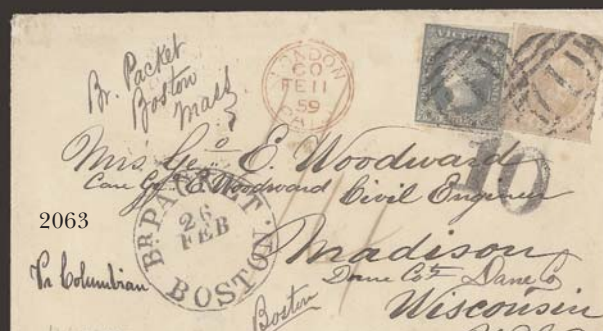 Br. Packet
Boston
Mass
LONDON
CO
FE 11
59
PAID
VICTORIA
Mrs. Geo. E. Woodward
Care Geo. E. Woodward Civil Engineer
10
2063
BR. PACKET
26
FEB
BOSTON
Madison
Dane Co. Dane Co
Pr Columbian
Boston
Wisconsin